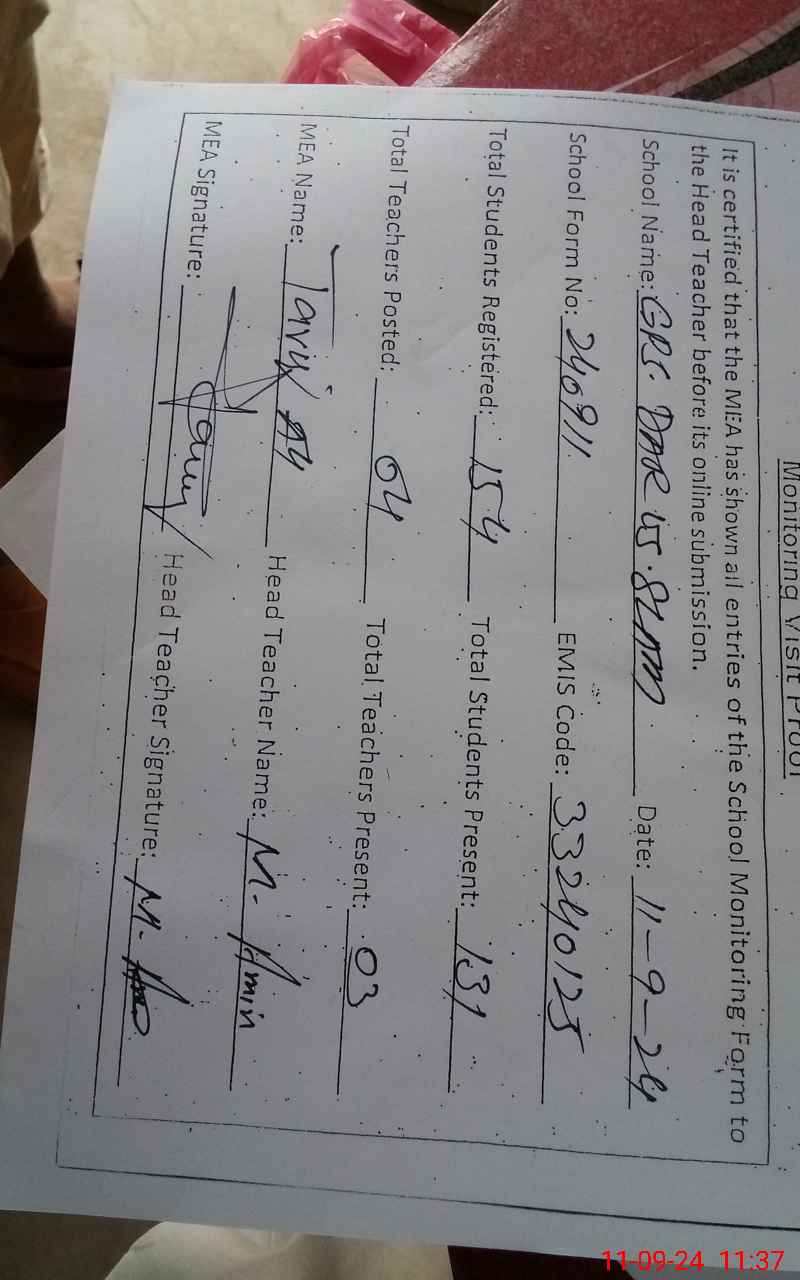 Monitoring Visit Proof
It is certified that the MEA has shown all entries of the School Monitoring Form to
the Head Teacher before its online submission.
School Name: GPS. DAR US. SLAM Date: 11-9-24
School Form No: 240911 EMIS Code: 33240125
Total Students Registered: 154 Total Students Present: 131
Total Teachers Posted: 04 Total Teachers Present: 03
MEA Name: Head Teacher Name: M. Amin
MEA Signature: Head Teacher Signature: M.
11-09-24 11:37